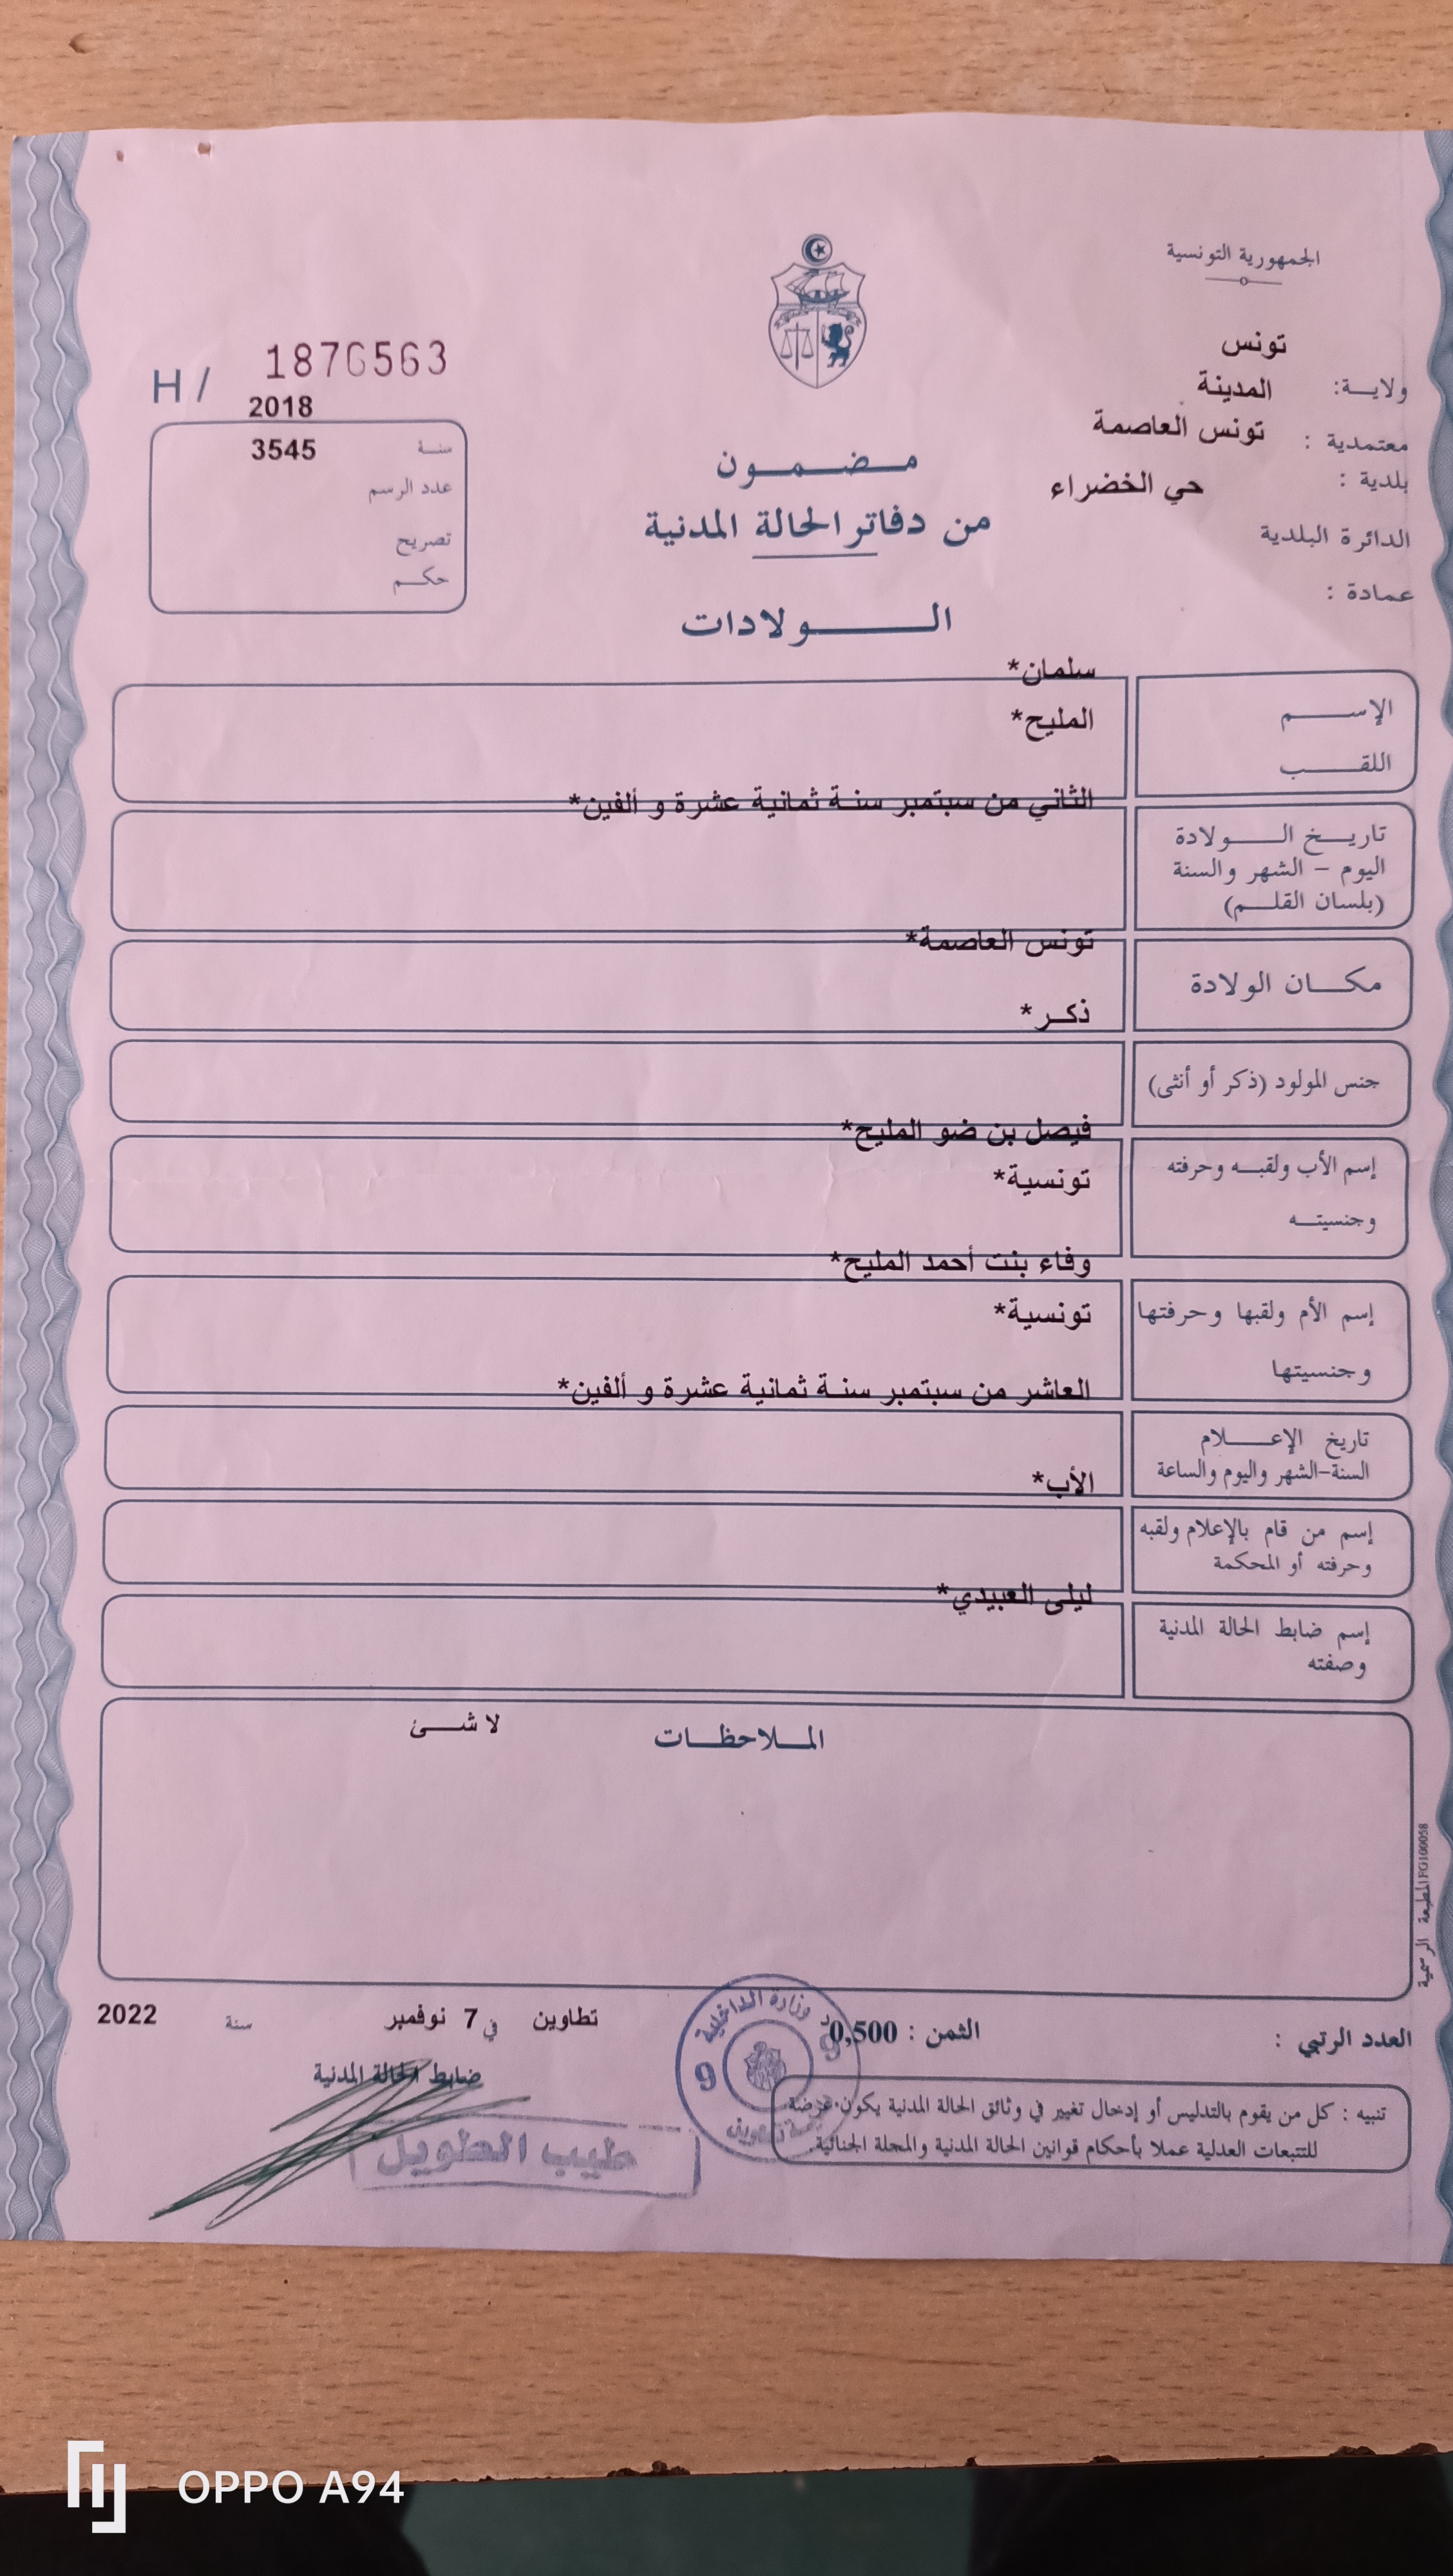 الجمهورية التونسية
تونس
ولايــة: المدينة
معتمدية : تونس العاصمة
بلدية : حي الخضراء
الدائرة البلدية
عمادة :
H / 1876563
2018
سنة 3545
عدد الرسم
تصريح
حكم
مضمون
من دفاتر الحالة المدنية
الولادات
سلمان*
الإســم
المليح*
اللقــب
الثاني من سبتمبر سنة ثمانية عشرة و ألفين*
تاريخ الولادة
اليوم - الشهر والسنة
(بلسان القلم)
تونس العاصمة*
مكان الولادة
ذكر*
جنس المولود (ذكر أو أنثى)
فيصل بن ضو المليح*
إسم الأب ولقبه وحرفته
تونسية*
وجنسيته
وفاء بنت أحمد المليح*
إسم الأم ولقبها وحرفتها
تونسية*
وجنسيتها
العاشر من سبتمبر سنة ثمانية عشرة و ألفين*
تاريخ الإعلام
السنة-الشهر واليوم والساعة
الأب*
إسم من قام بالإعلام ولقبه
وحرفته أو المحكمة
ليلى العبيدي*
إسم ضابط الحالة المدنية
وصفته
الملاحظات لا شئ
المطبعة الرسمية FG100058
العدد الرتبي : الثمن : 0,500 د
تطاوين في 7 نوفمبر سنة 2022
ضابط الحالة المدنية
وزارة الداخلية
9
9
طيب الطويل
تنبيه : كل من يقوم بالتدليس أو إدخال تغيير في وثائق الحالة المدنية يكون عرضة
للتتبعات العدلية عملا بأحكام قوانين الحالة المدنية والمجلة الجنائية.
OPPO A94